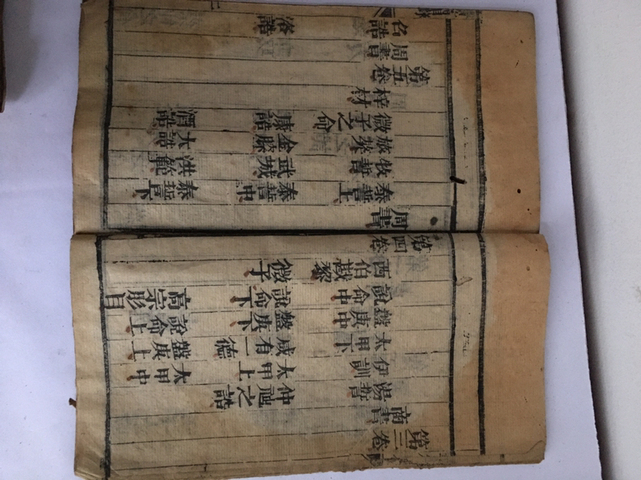 第三卷
商書
湯誓 仲虺之誥
伊訓 太甲上 太甲中
太甲下 咸有一德 盤庚上
盤庚中 盤庚下 說命上
說命中 說命下 高宗肜日
西伯戡黎 微子
第四卷
周書
泰誓上 泰誓中 泰誓下
牧誓 武成 洪範
旅獒 金縢 大誥
微子之命 康誥 酒誥
梓材
第五卷
周書
召誥 洛誥